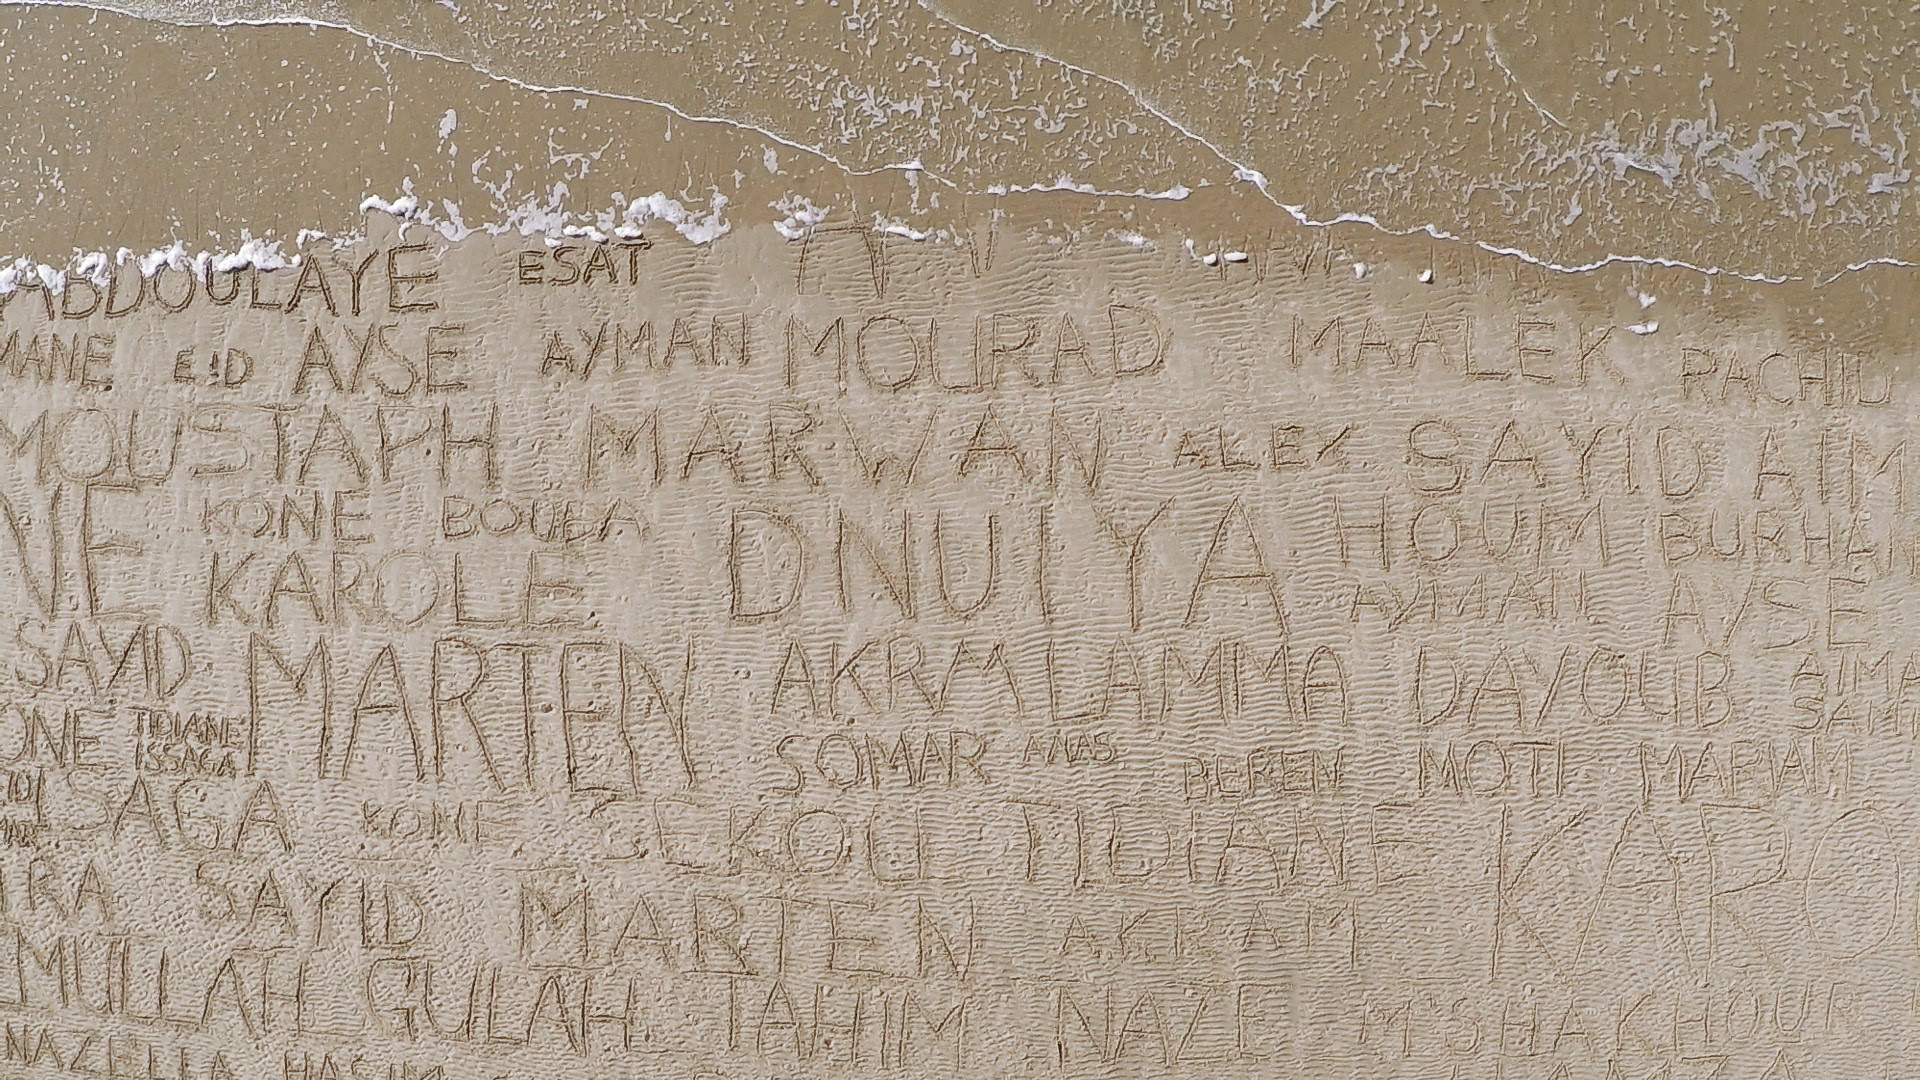 ABDOULAYE ESAT
EID AYSE AYMAN MOURAD MAALEK RACHID
MOUSTAPH MARWAN ALEX SAYID AIM
NE KONE BOUBA DNUIYA HOUM BURHAN
KAROLE AYMAN AYSE
SAYID MARTEN AKRAM LAMMA DAYOUB AIMA
ONE TIDIANE SAM
ISSAGA SOMAR ANAS BEREN MOTI MARIAM
SAGA KONE SEKOU TIDIANE KARO
RA SAYID MARTEN AKRAM
MULLAH GULAH TAHIM NAZE M'SHAKHOUR
NAZELLA HASIM